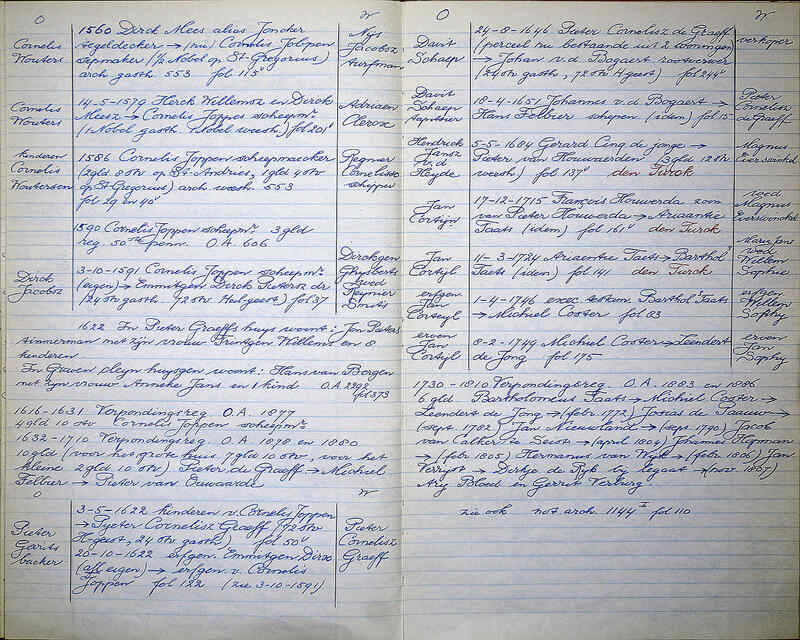 O W
1560 Dirck Mees alias Joncker
Cornelis Wouters
tegeldecker → (nu) Cornelis Jobpen
sepmaker (½ Nobel op St-Gregorius)
arch gasth. 553 fol 113v
Nijs Jacobsz
14-5-1579 Herck Willemsz en Dirck
Cornelis Wouters
Meesz → Cornelis Joppes scheepmr
(1 Nobel gasth. 1 Nobel weesh) fol 201v
Adriaen
kinderen Cornelis Wouterszen
1586 Cornelis Joppen scheepmaecker
(2gld 8 stv op St-Andries, 1gld 4 stv
op St-Gregorius) arch weesh. 553
fol 29 en 40v
Regnier Cornelisse schipper
1590 Cornelis Joppen scheepmr 3 gld
reg. 50ste penn. O.A. 606
Dirck Jacobsz
3-10-1591 Cornelis Joppen scheepmr
(eigen) → Emmitgen Dirck Pietersz dr
(24 stv gasth. 72 stv H.geest) fol 37
Dirckgen Ghysberts
1622 In Pieter Graeffs huys woont: Jan Pieters
timmerman met zijn vrouw Trintgen Willems en 8
kinderen
In Gouwen pleyn huysgen woont: Hans van Bergen
met zijn vrouw Anneke Jans en 1 kind O.A. 2392
fol 373
1616-1631 Verpondingsreg O.A. 1877
4 gld 10 stv Cornelis Joppen scheepmr
1632-1710 Verpondingsreg O.A. 1878 en 1880
10 gld (voor het grote huis 7 gld 10 stv, voor het
kleine 2 gld 10 stv) Pieter de Graeff → Michiel
Felbier → Pieter van Ouwaarde
O W
Pieter Garits backer
3-5-1622 kinderen v. Cornelis Joppen
→ Pyeter Cornelisz Graeff (72 stv
H.geest, 24 stv gasth.) fol 50v
20-10-1622 erfgen. Emmitgen Dirx
(all eigen) → erfgen. v. Cornelis
Joppen fol 122 (zie 3-10-1591)
Pieter Cornelisz Graeff
O W
Davit Schaep
24-8-1646 Pieter Cornelisz de Graeff
(perceel nu bestaande uit 2 woningen)
→ Johan v.d. Bogaert
(24 stv gasth, 72 stv H geest) fol 244v
verkoper
Davit Schaep
18-4-1651 Johannes v.d. Bogaert →
Hans Felbier schepen (idem) fol 15v
Pieter Cornelisz de Graeff
Hendrick Jansz v.d. Heyde
5-5-1684 Gerard Cinq de jonge →
Pieter van Houwaerden (3 gld 12 stv
weesh) fol 137v den Turck
Magnus
Jan Cortijn
17-12-1715 François Houwerda zoon
van Pieter Houwerda → Ariaantie
Taats (idem) fol 161v den Turck
wed Magnus
Jan Cortyl
11-3-1724 Ariaentie Taets → Barthol
Taets (idem) fol 141 den Turck
Willem Sophie
erfgen Jan Corteyl
1-4-1746 exec. testam. Barthol Taats
→ Michiel Coster fol 83
erfgen Willem Sophy
erven Jan Cortyl
8-2-1749 Michiel Coster → Leendert
de Jong fol 175
erven Jan Saphy
1730-1810 Verpondingsreg. O.A. 1883 en 1886
6 gld Bartholomeus Taats → Michiel Coster →
Leendert de Jong → (febr. 1772) Josias de Taeuw →
(sept. 1782) Jan Nieuwland → (sept 1790) Jacob
van Catherize Seist → (april 1804) Johannes Hopman
→ (febr 1805) Hermanus van Wyk → (febr. 1806) Jan
Verryst → Dirkje de Ryk by legaat → (nov. 1867)
Ary Bloed en Gerrit Verburg
zie ook not arch. 1144 I fol 110